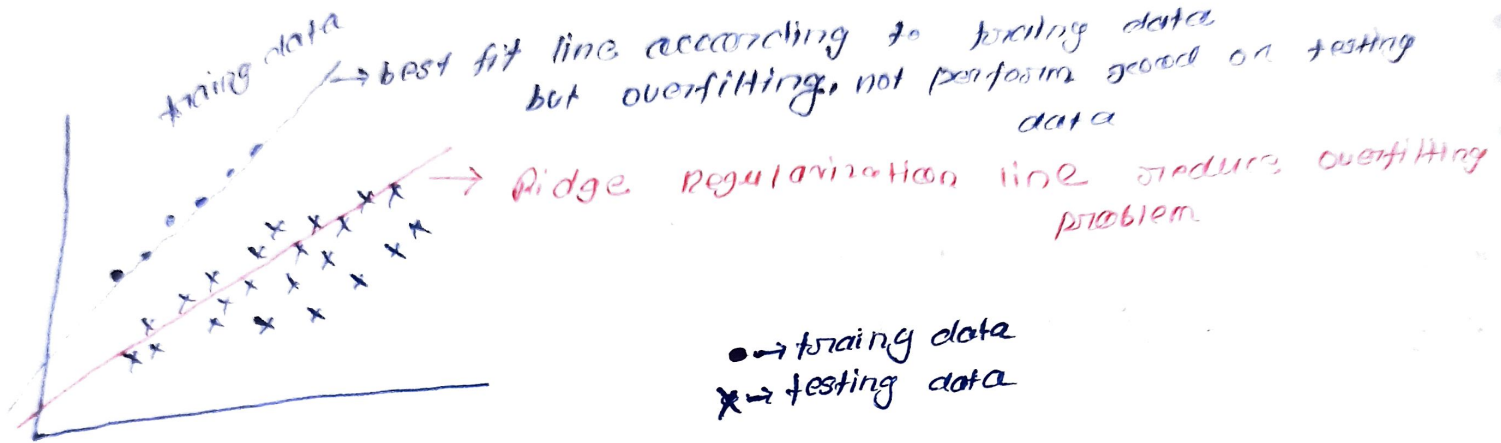 traing data
best fit line acccording to traing data
but overfitting, not perform good on testing
data
Ridge Regularization line reduce overfitting
problem
traing data
testing data